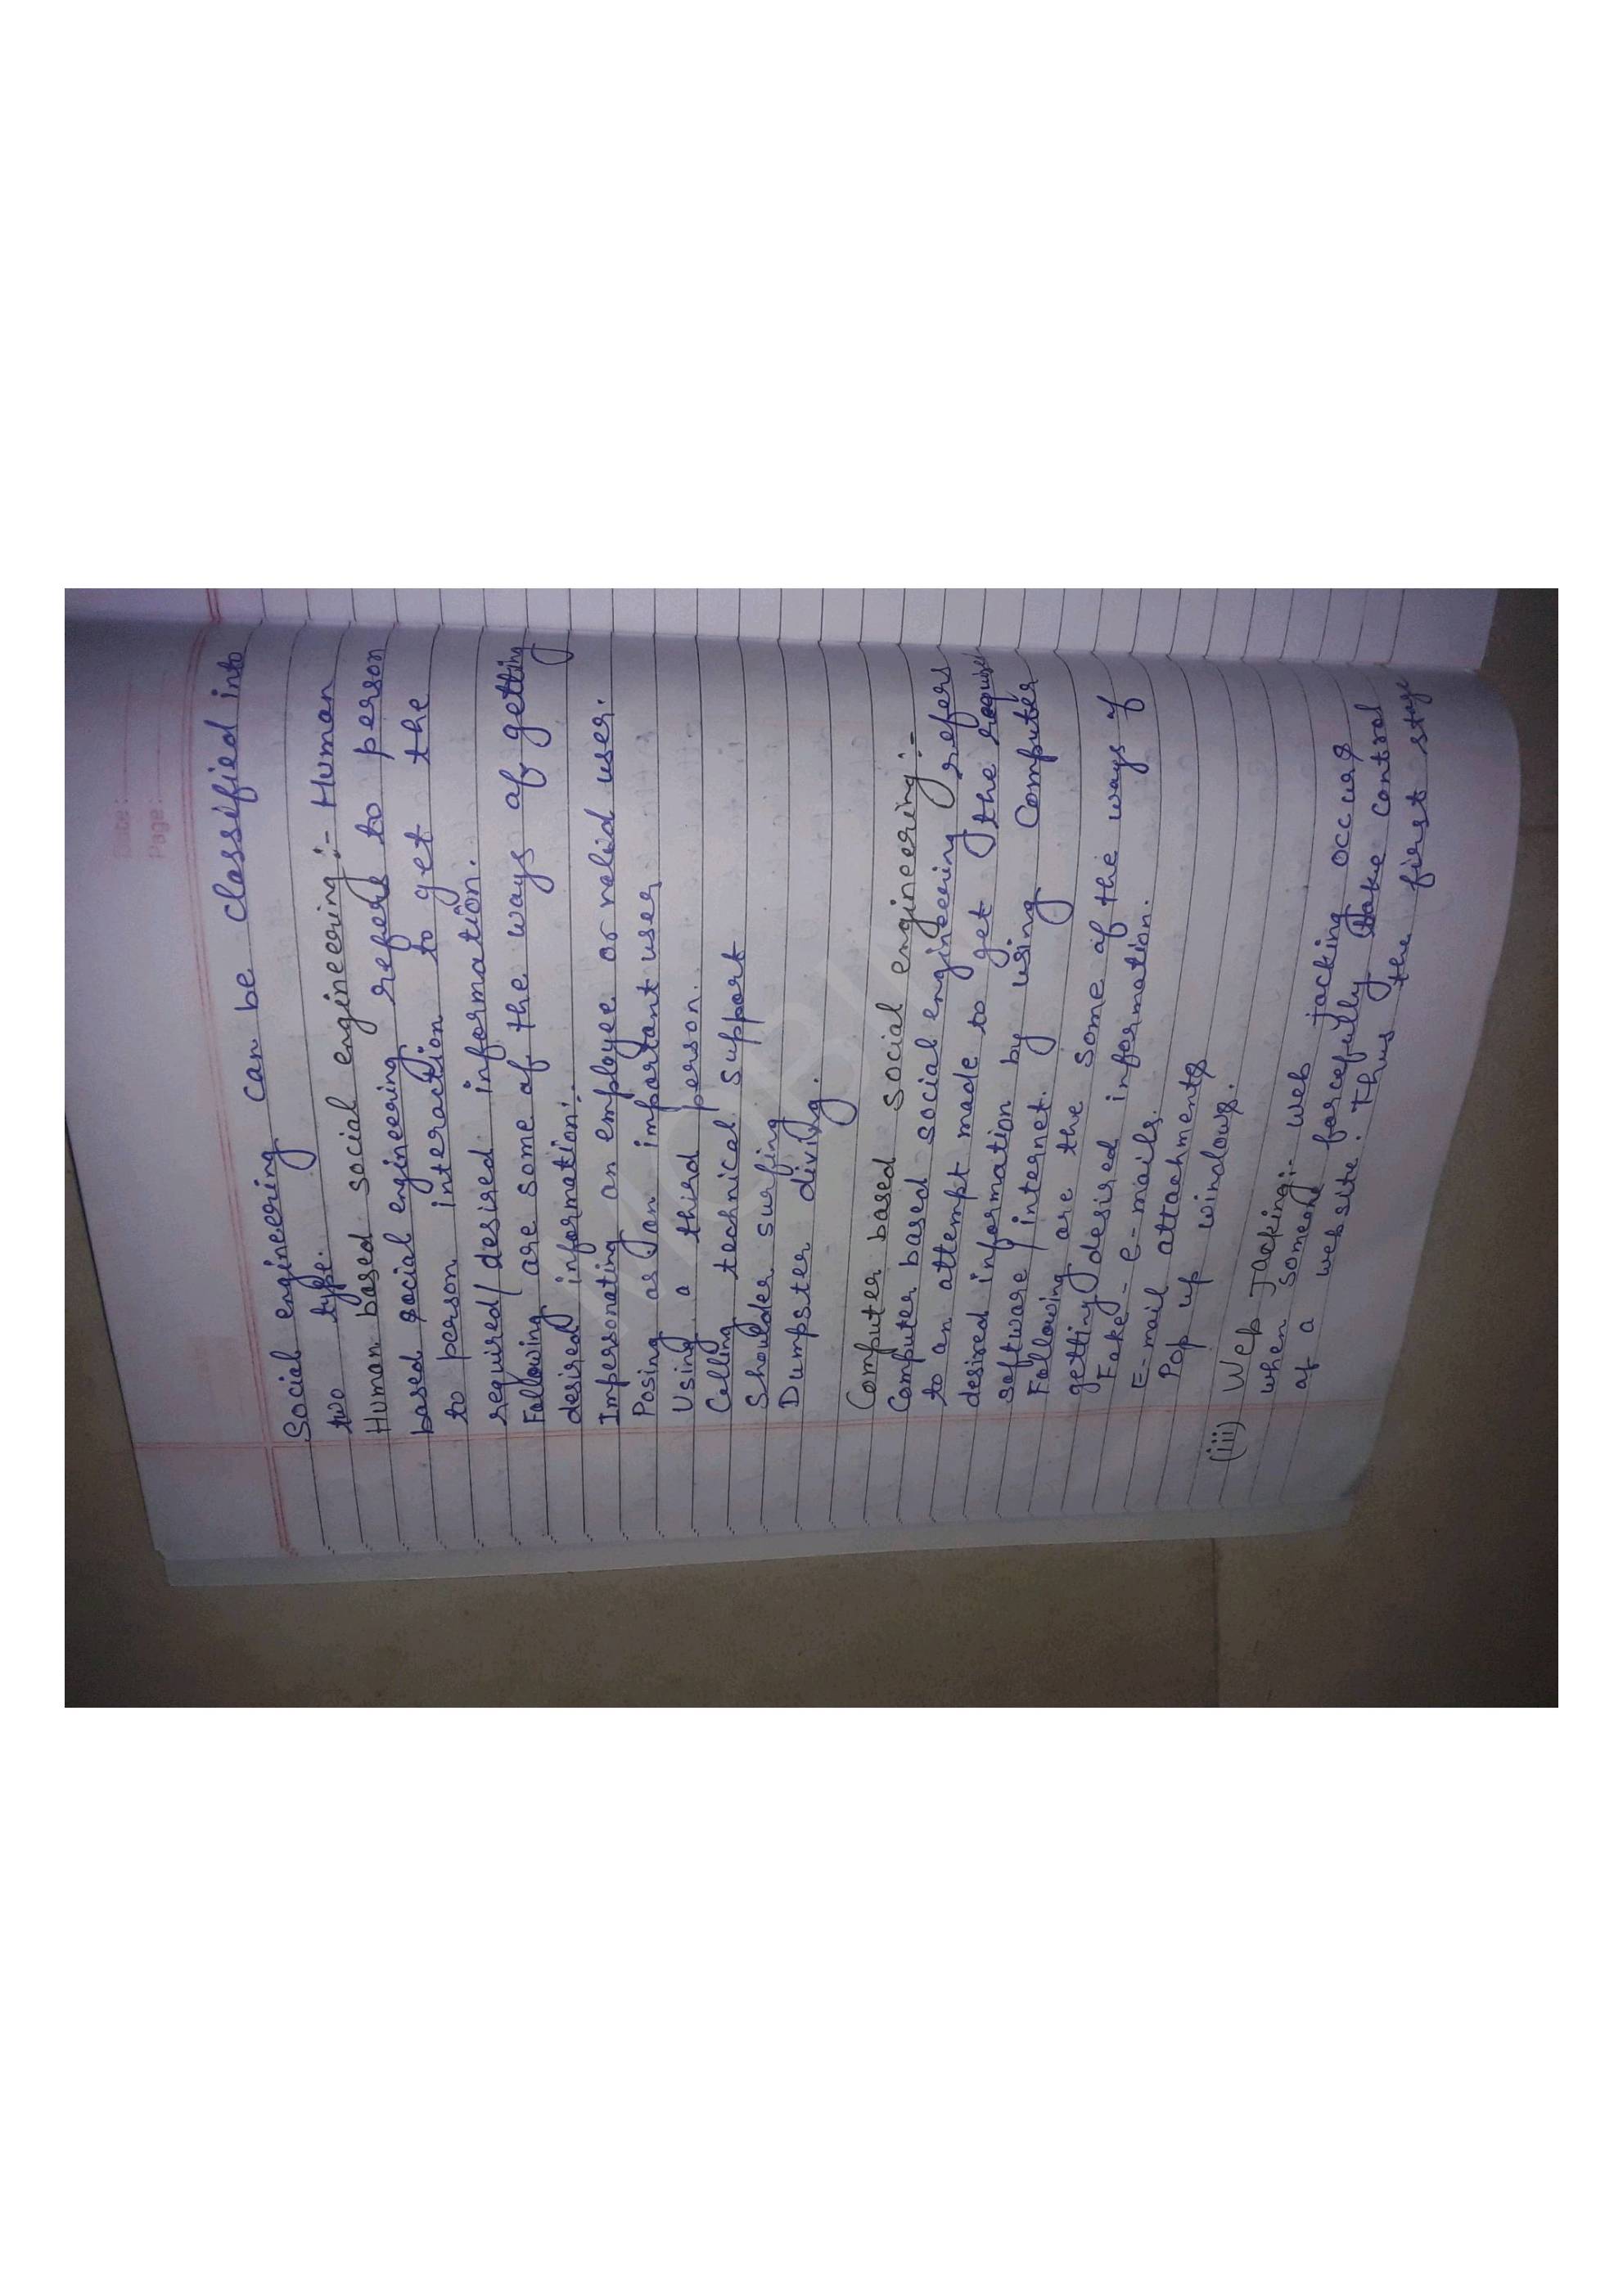 Date:
Page:
Social engineering can be classified into
two type.
Human based social engineering:- Human
based social engineering refers to person
to person interaction to get the
required/desired information.
Following are some of the ways of getting
desired information:.
Impersonating an employee or valid user.
Posing as an important user
Using a third person.
Calling technical support
Shoulder surfing
Dumpster diving.
Computer based social engineering:-
Computer based social engineering refers
to an attempt made to get the require
desired information by using Computer
software/internet.
Following are the some of the ways of
getting desired information.
Fake - e-mails.
E-mail attachments
Pop up windows.
(iii) Web Jacking:- web jacking occurs
when someone forcefully take control
of a website. Thus the first stage